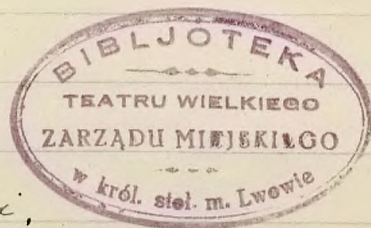 BIBLJOTEKA
TEATRU WIELKIEGO
ZARZĄDU MIEJSKIEGO
w król. stoł. m. Lwowie